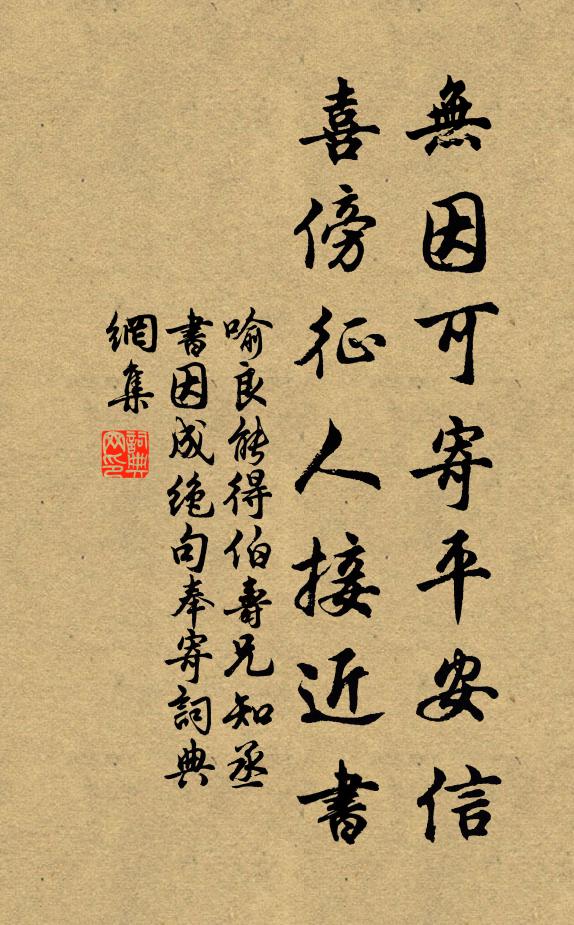 無因可寄平安信
喜傍征人接近書
喻良能得伯壽兄知丞
書因成絶句奉寄詞典
網集
詞典
网印